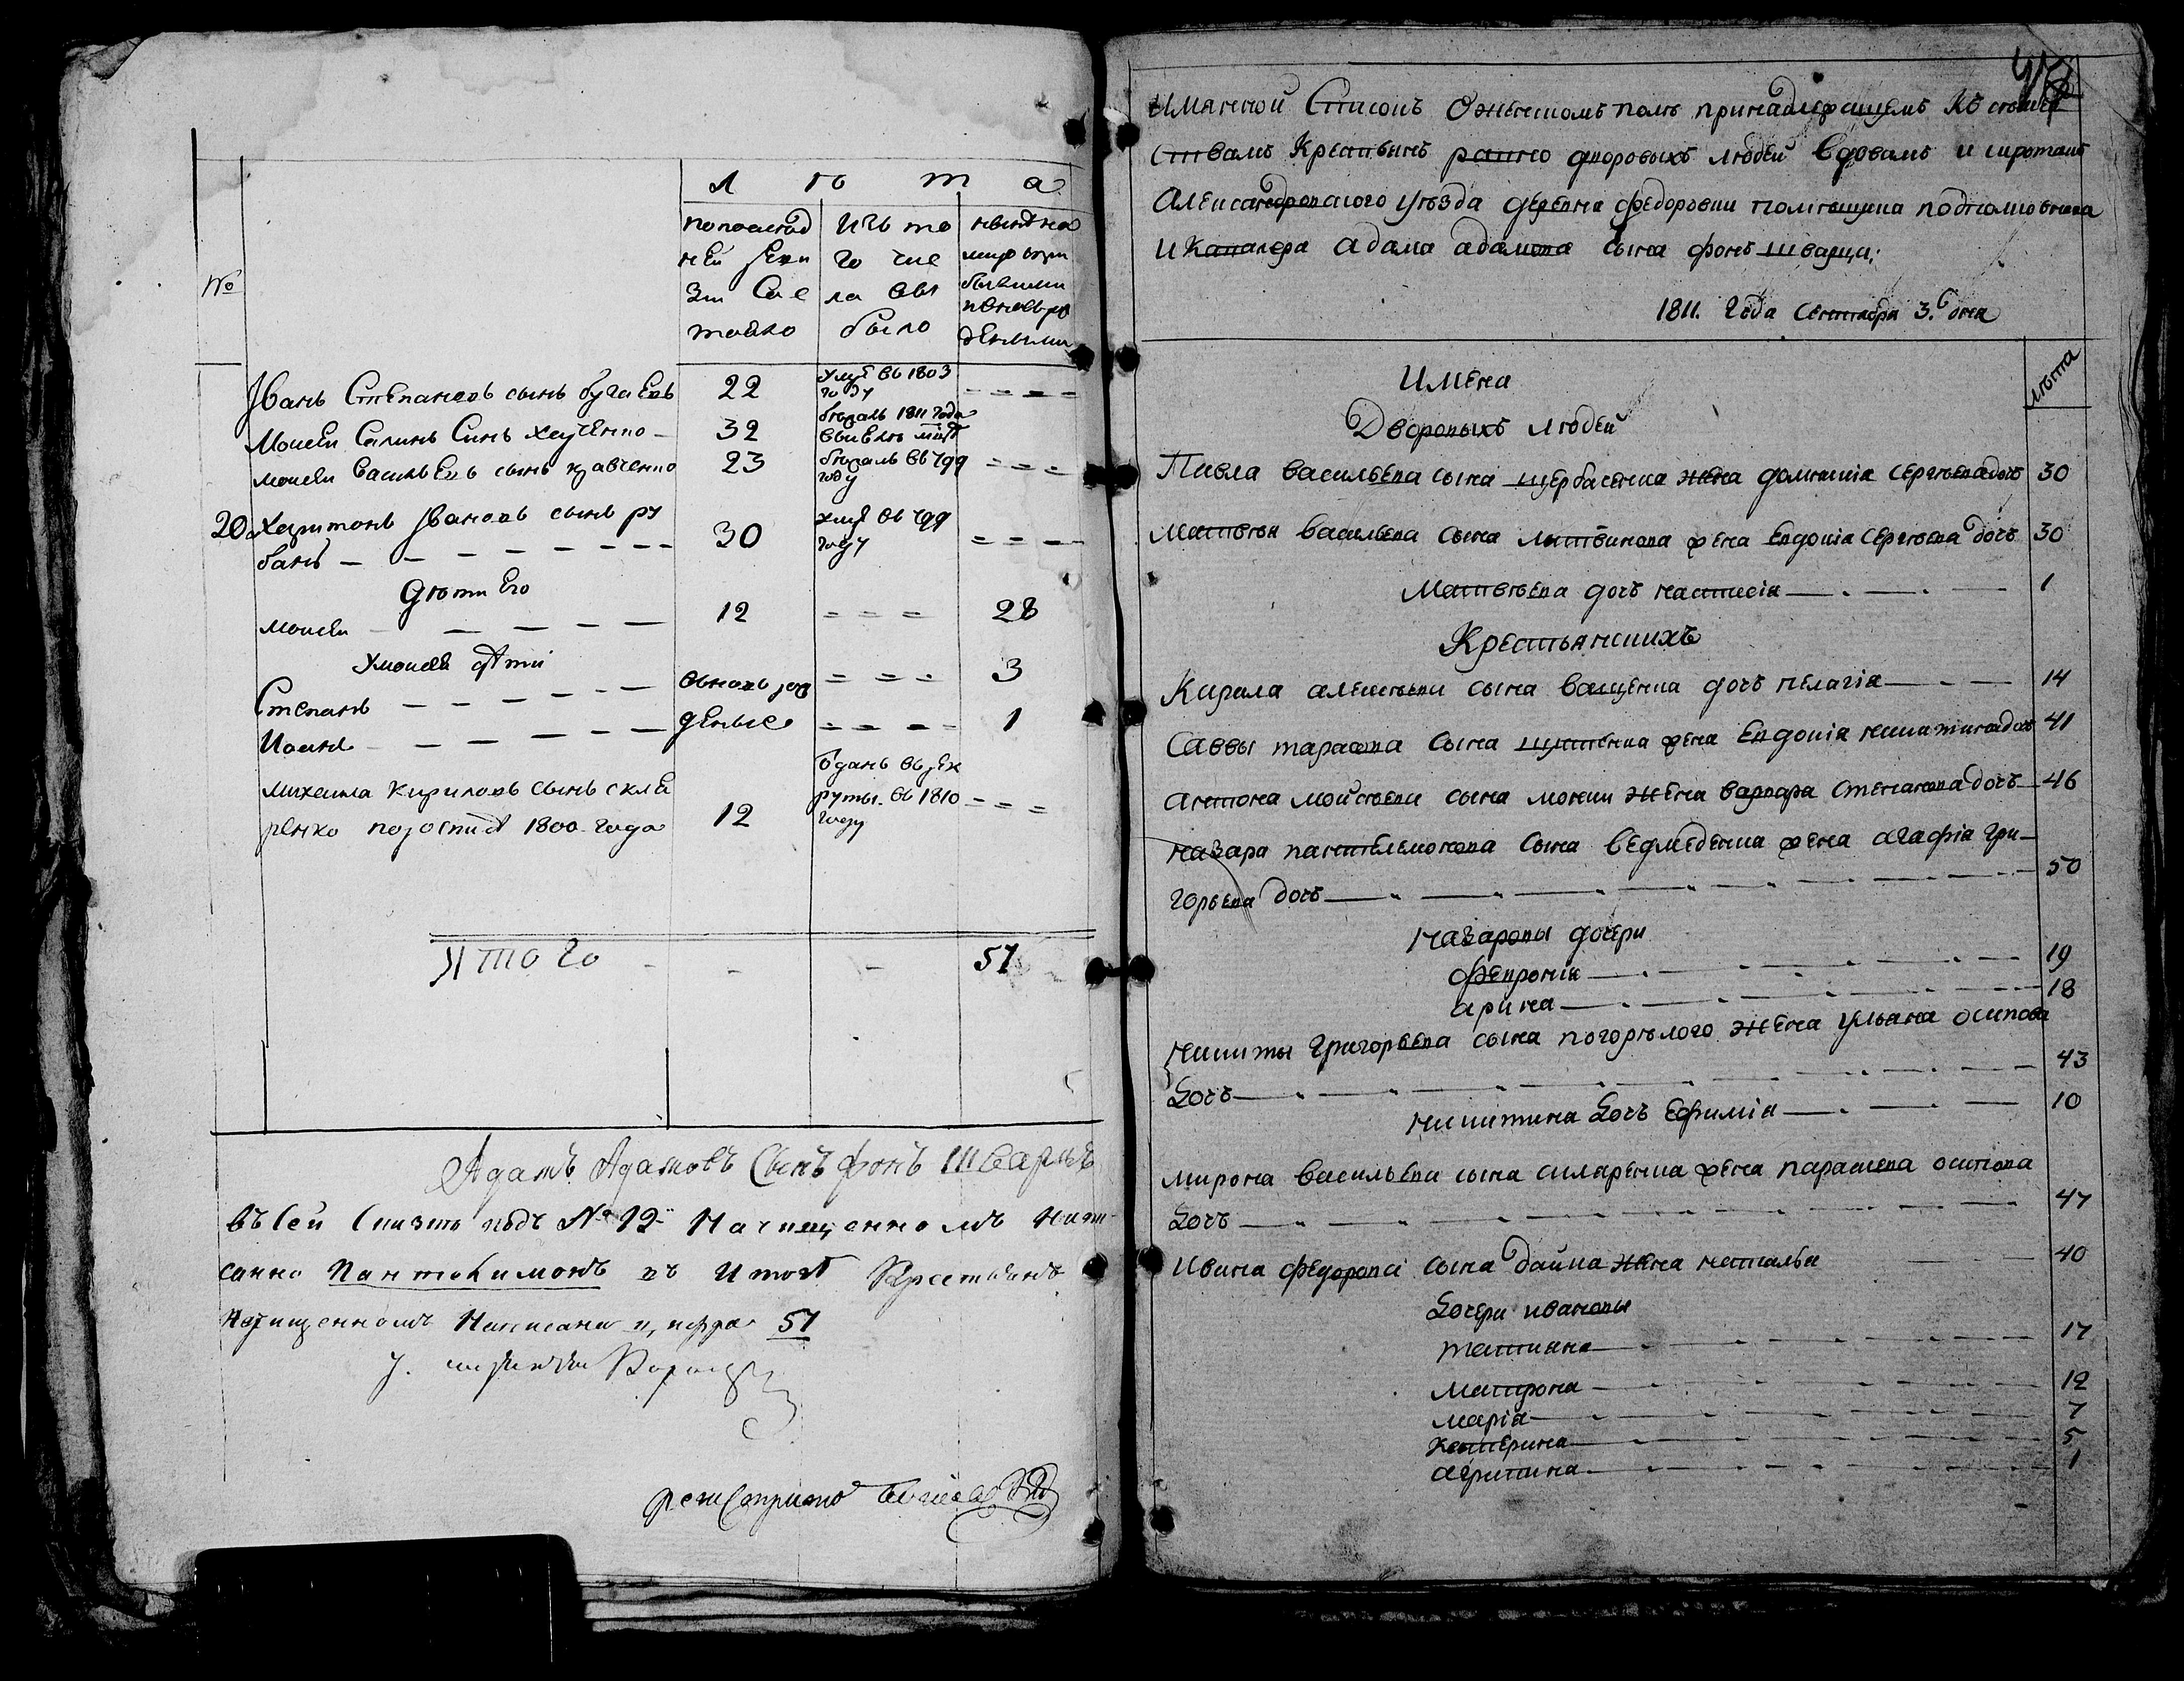 №
Лѣта
по последней ревизіи состояло
изъ того числа выбыло
нынѣ на лицо съ прибылыми и вновь рожденными
Іванъ Степановъ сынъ бугаевъ 22 умре въ 1803 году
Моисеи Савинъ Синъ 32 бѣжалъ 1811 года
моисеи Васильевъ сынъ кравченко 23 бѣжалъ въ 799 году
20 Харитонъ Івановъ сынъ рубанъ 30 умре въ 799 году
Дѣти Его
моисеи 12 28
У моисея дѣти
Степанъ вновь рож 3
Иванъ деные 1
михаила кириловъ сынъ скляренко 12 одданъ въ рекруты въ 1810 году
1800 года
Итого 51
Адамъ Адамовъ Сынъ фонъ Шварцъ
въ Сей Списъке подъ № 12 Начищенномъ Напи
санно Пантелимонъ въ Итогѣ Крестьянъ
Начищенномъ Написана цифра 51
Имянной Списокъ О женскомъ полѣ принадлежащемъ Къ
ствамъ Крестьянъ равно дворовыхъ людей вдовамъ и сиротамъ
Александровского уѣзда деревни федоровки помѣщика подполковника
и Кавалера адама адамова сына фонъ шварца:
1811. Года Сентября 3. дня
Имена лѣта
Дворовыхъ людей
Павла васильева сына щербаченка жена домникія Сергѣева дочь 30
Матвѣя васильева сына литвинова жена Евдокія Сергѣева дочь 30
Матвѣева дочь настасія 1
Крестьянскихъ
Кирила алексѣева сына ващенка дочь пелагія 14
Саввы тарасова сына жена Евдокія никитина дочь 41
антона мойсѣева сына жена варвара степанова дочь 46
назара пантелемонова сына ведмеденка жена агафія гри-
горьева дочь 50
Назаровы дочери
февронія 19
арина 18
никиты григорьева сына погорѣлого жена ульяна осипова
Дочь 43
никитина Дочь Ефимія 10
мирона васильева сына скляренка жена параскева осипова
Дочь 47
ивана федорова сына жена наталья 40
Дочери ивановы
татьяна 17
матрона 12
марія 7
катерина 5
агрипина 1